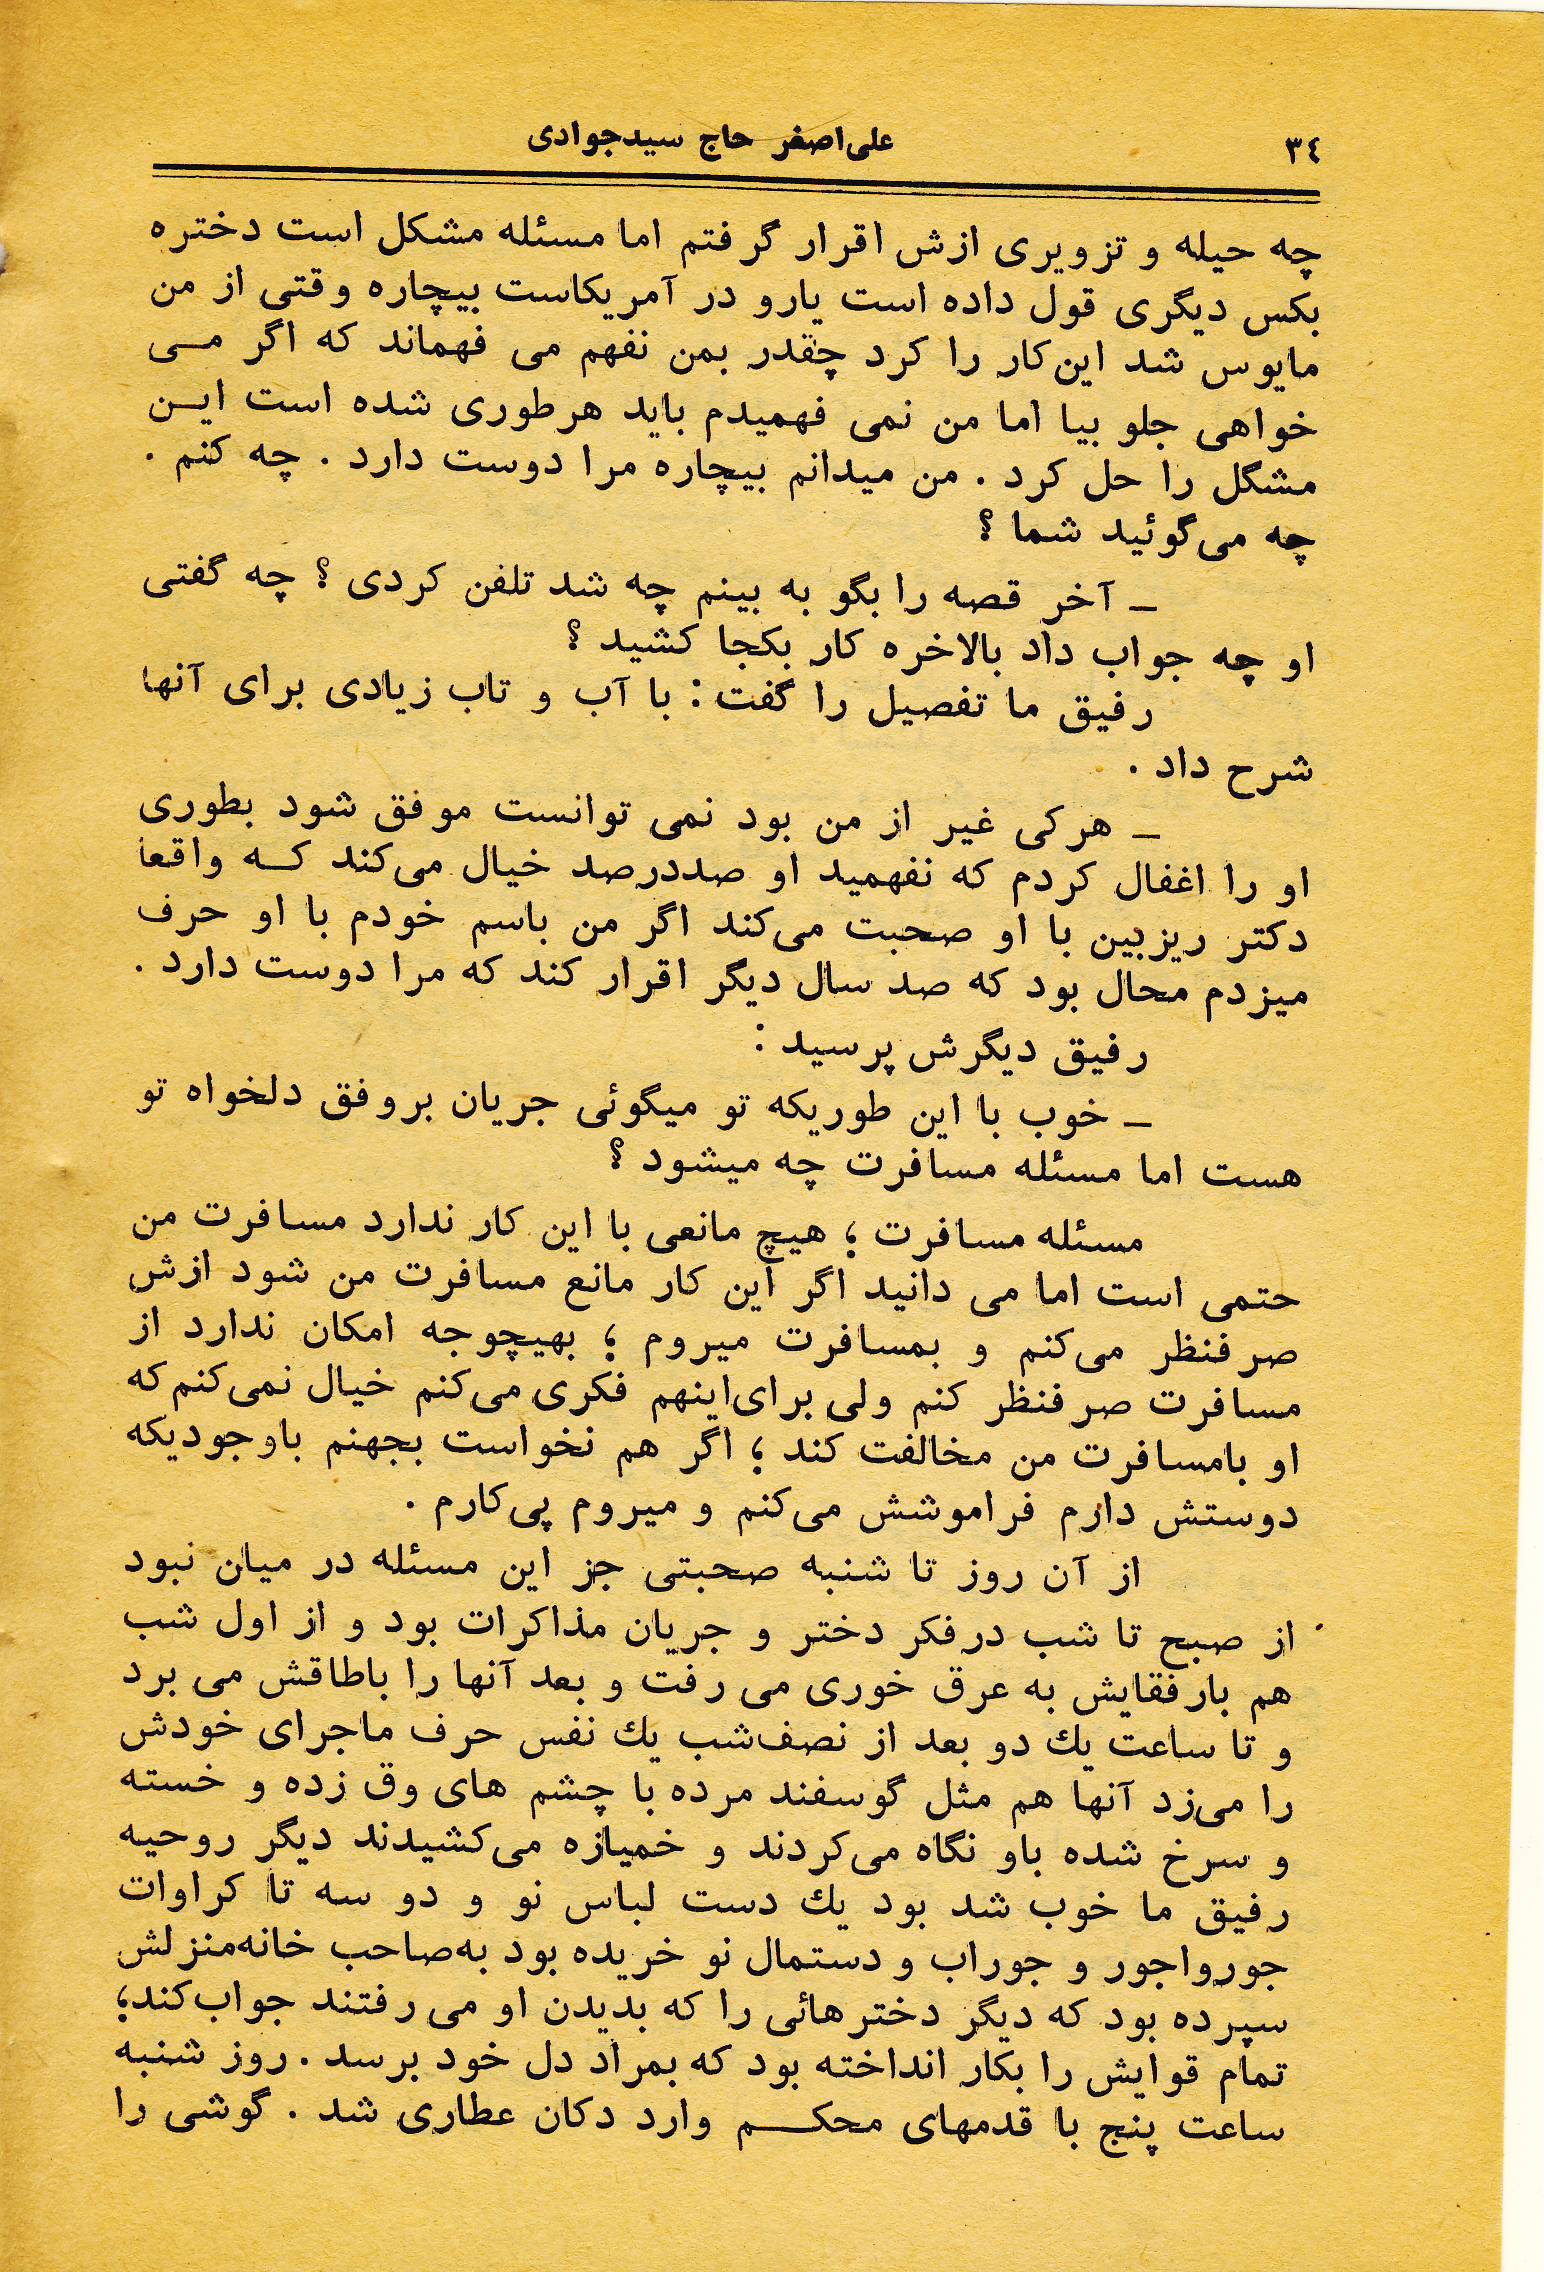 ۳٤
علی‌اصغر حاج سیدجوادی
چه حیله و تزویری ازش اقرار گرفتم اما مسئله مشکل است دختره
بکس دیگری قول داده است یارو در آمریکاست بیچاره وقتی از من
مایوس شد این‌کار را کرد چقدر بمن نفهم می فهماند که اگر مــی
خواهی جلو بیا اما من نمی فهمیدم باید هرطوری شده است ایــن
مشگل را حل کرد . من میدانم بیچاره مرا دوست دارد . چه کنم .
چه می‌گوئید شما ؟
ـ آخر قصه را بگو به بینم چه شد تلفن کردی ؟ چه گفتی
او چه جواب داد بالاخره کار بکجا کشید ؟
رفیق ما تفصیل را گفت : با آب و تاب زیادی برای آنها
شرح داد .
ـ هرکی غیر از من بود نمی توانست موفق شود بطوری
او را اغفال کردم که نفهمید او صددرصد خیال می‌کند کــه واقعا
دکتر ریزبین با او صحبت می‌کند اگر من باسم خودم با او حرف
میزدم محال بود که صد سال دیگر اقرار کند که مرا دوست دارد .
رفیق دیگرش پرسید :
ـ خوب با این طوریکه تو میگوئی جریان بروفق دلخواه تو
هست اما مسئله مسافرت چه میشود ؟
مسئله مسافرت ؛ هیچ مانعی با این کار ندارد مسافرت من
حتمی است اما می دانید اگر این کار مانع مسافرت من شود ازش
صرفنظر می‌کنم و بمسافرت میروم ؛ بهیچوجه امکان ندارد از
مسافرت صرفنظر کنم ولی برای‌اینهم فکری می‌کنم خیال نمی‌کنم که
او بامسافرت من مخالفت کند ؛ اگر هم نخواست بجهنم باوجودیکه
دوستش دارم فراموشش می‌کنم و میروم پی‌کارم .
از آن روز تا شنبه صحبتی جز این مسئله در میان نبود
از صبح تا شب درفکر دختر و جریان مذاکرات بود و از اول شب
هم بارفقایش به عرق خوری می رفت و بعد آنها را باطاقش می برد
و تا ساعت یك دو بعد از نصف‌شب یك نفس حرف ماجرای خودش
را می‌زد آنها هم مثل گوسفند مرده با چشم های وق زده و خسته
و سرخ شده باو نگاه می‌کردند و خمیازه می‌کشیدند دیگر روحیه
رفیق ما خوب شد بود یك دست لباس نو و دو سه تا کراوات
جورواجور و جوراب و دستمال نو خریده بود به‌صاحب خانه‌منزلش
سپرده بود که دیگر دخترهائی را که بدیدن او می رفتند جواب‌کند؛
تمام قوایش را بکار انداخته بود که بمراد دل خود برسد . روز شنبه
ساعت پنج با قدمهای محکـــم وارد دکان عطاری شد . گوشی را